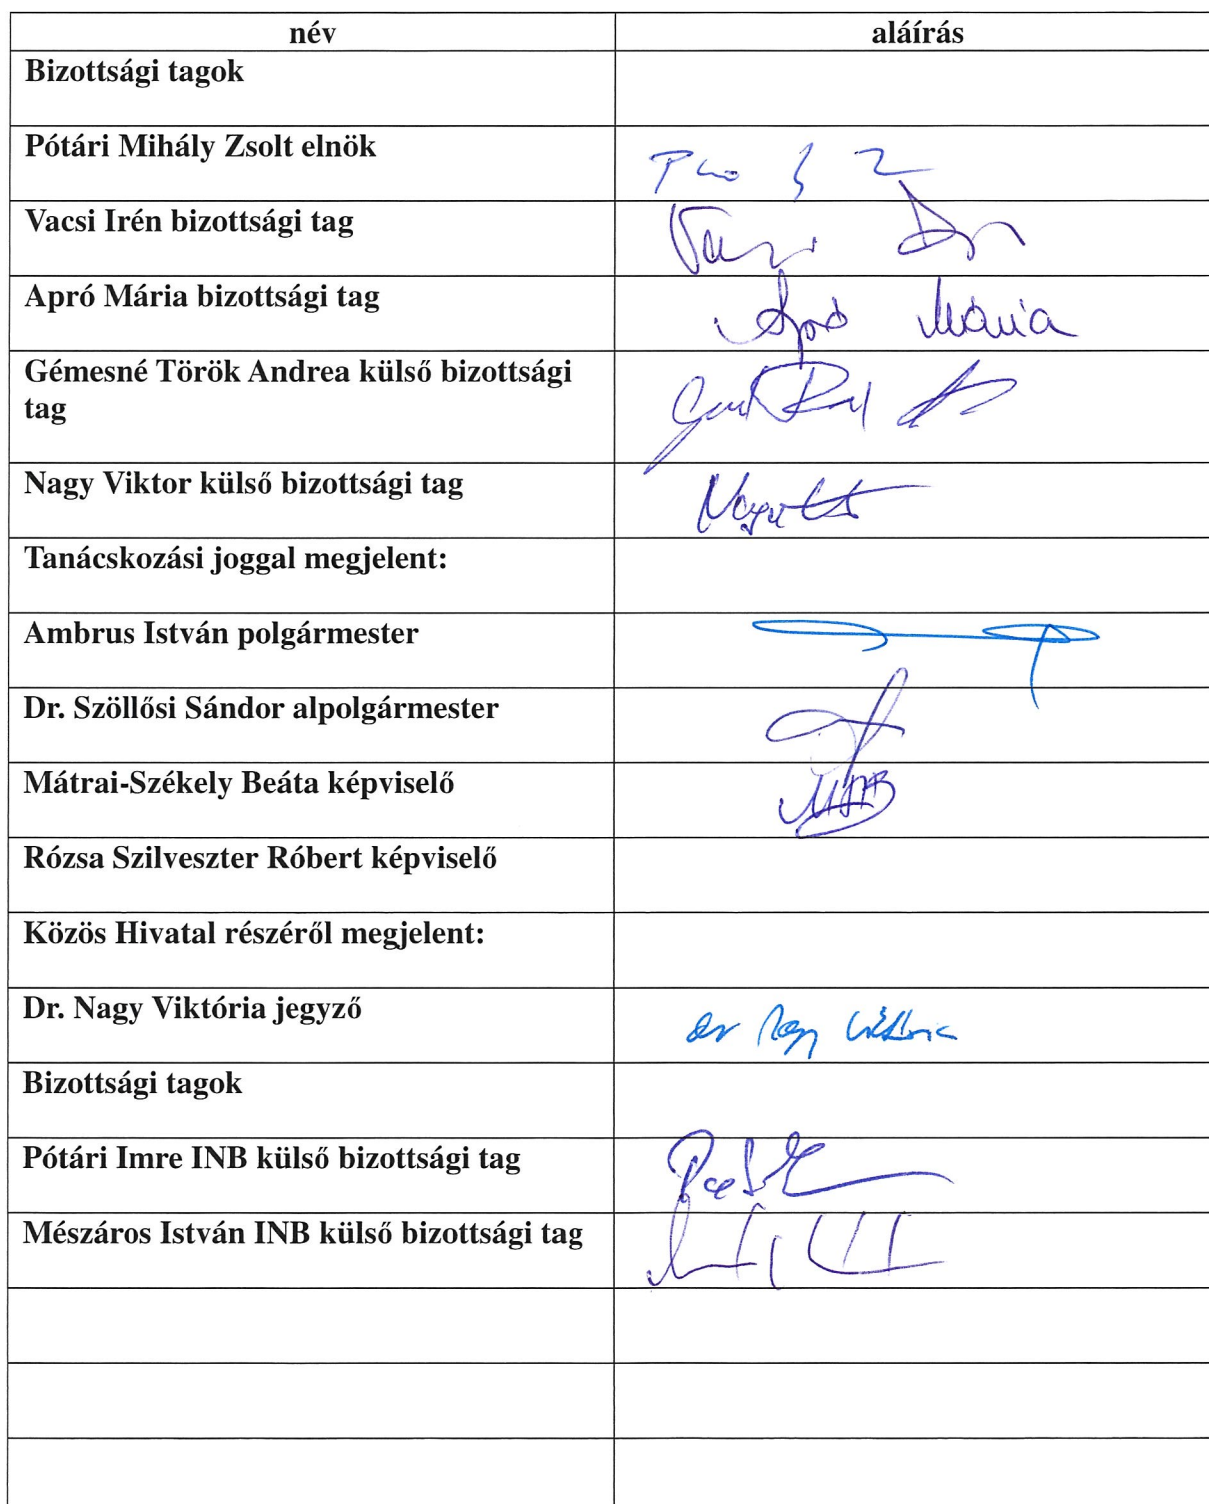 név aláírás
Bizottsági tagok
Pótári Mihály Zsolt elnök
Vacsi Irén bizottsági tag
Apró Mária bizottsági tag Apró Mária
Gémesné Török Andrea külső bizottsági
tag
Nagy Viktor külső bizottsági tag
Tanácskozási joggal megjelent:
Ambrus István polgármester
Dr. Szöllősi Sándor alpolgármester
Mátrai-Székely Beáta képviselő
Rózsa Szilveszter Róbert képviselő
Közös Hivatal részéről megjelent:
Dr. Nagy Viktória jegyző dr Nagy Viktória
Bizottsági tagok
Pótári Imre INB külső bizottsági tag
Mészáros István INB külső bizottsági tag